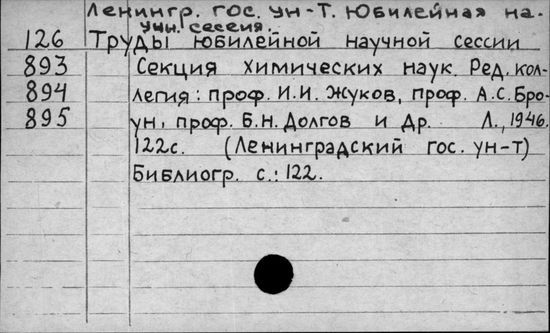 Ленингр. гос. ун-т. Юбилейная на-
учн. сессия.
126 Труды юбилейной научной сессии
893 Секция химических наук. Ред. кол-
894 легия: проф. И.И. Жуков, проф. А.С. Бро-
895 ун, проф. Б.Н. Долгов и др. Л., 1946.
122с. (Ленинградский гос. ун-т)
Библиогр. с.: 122.